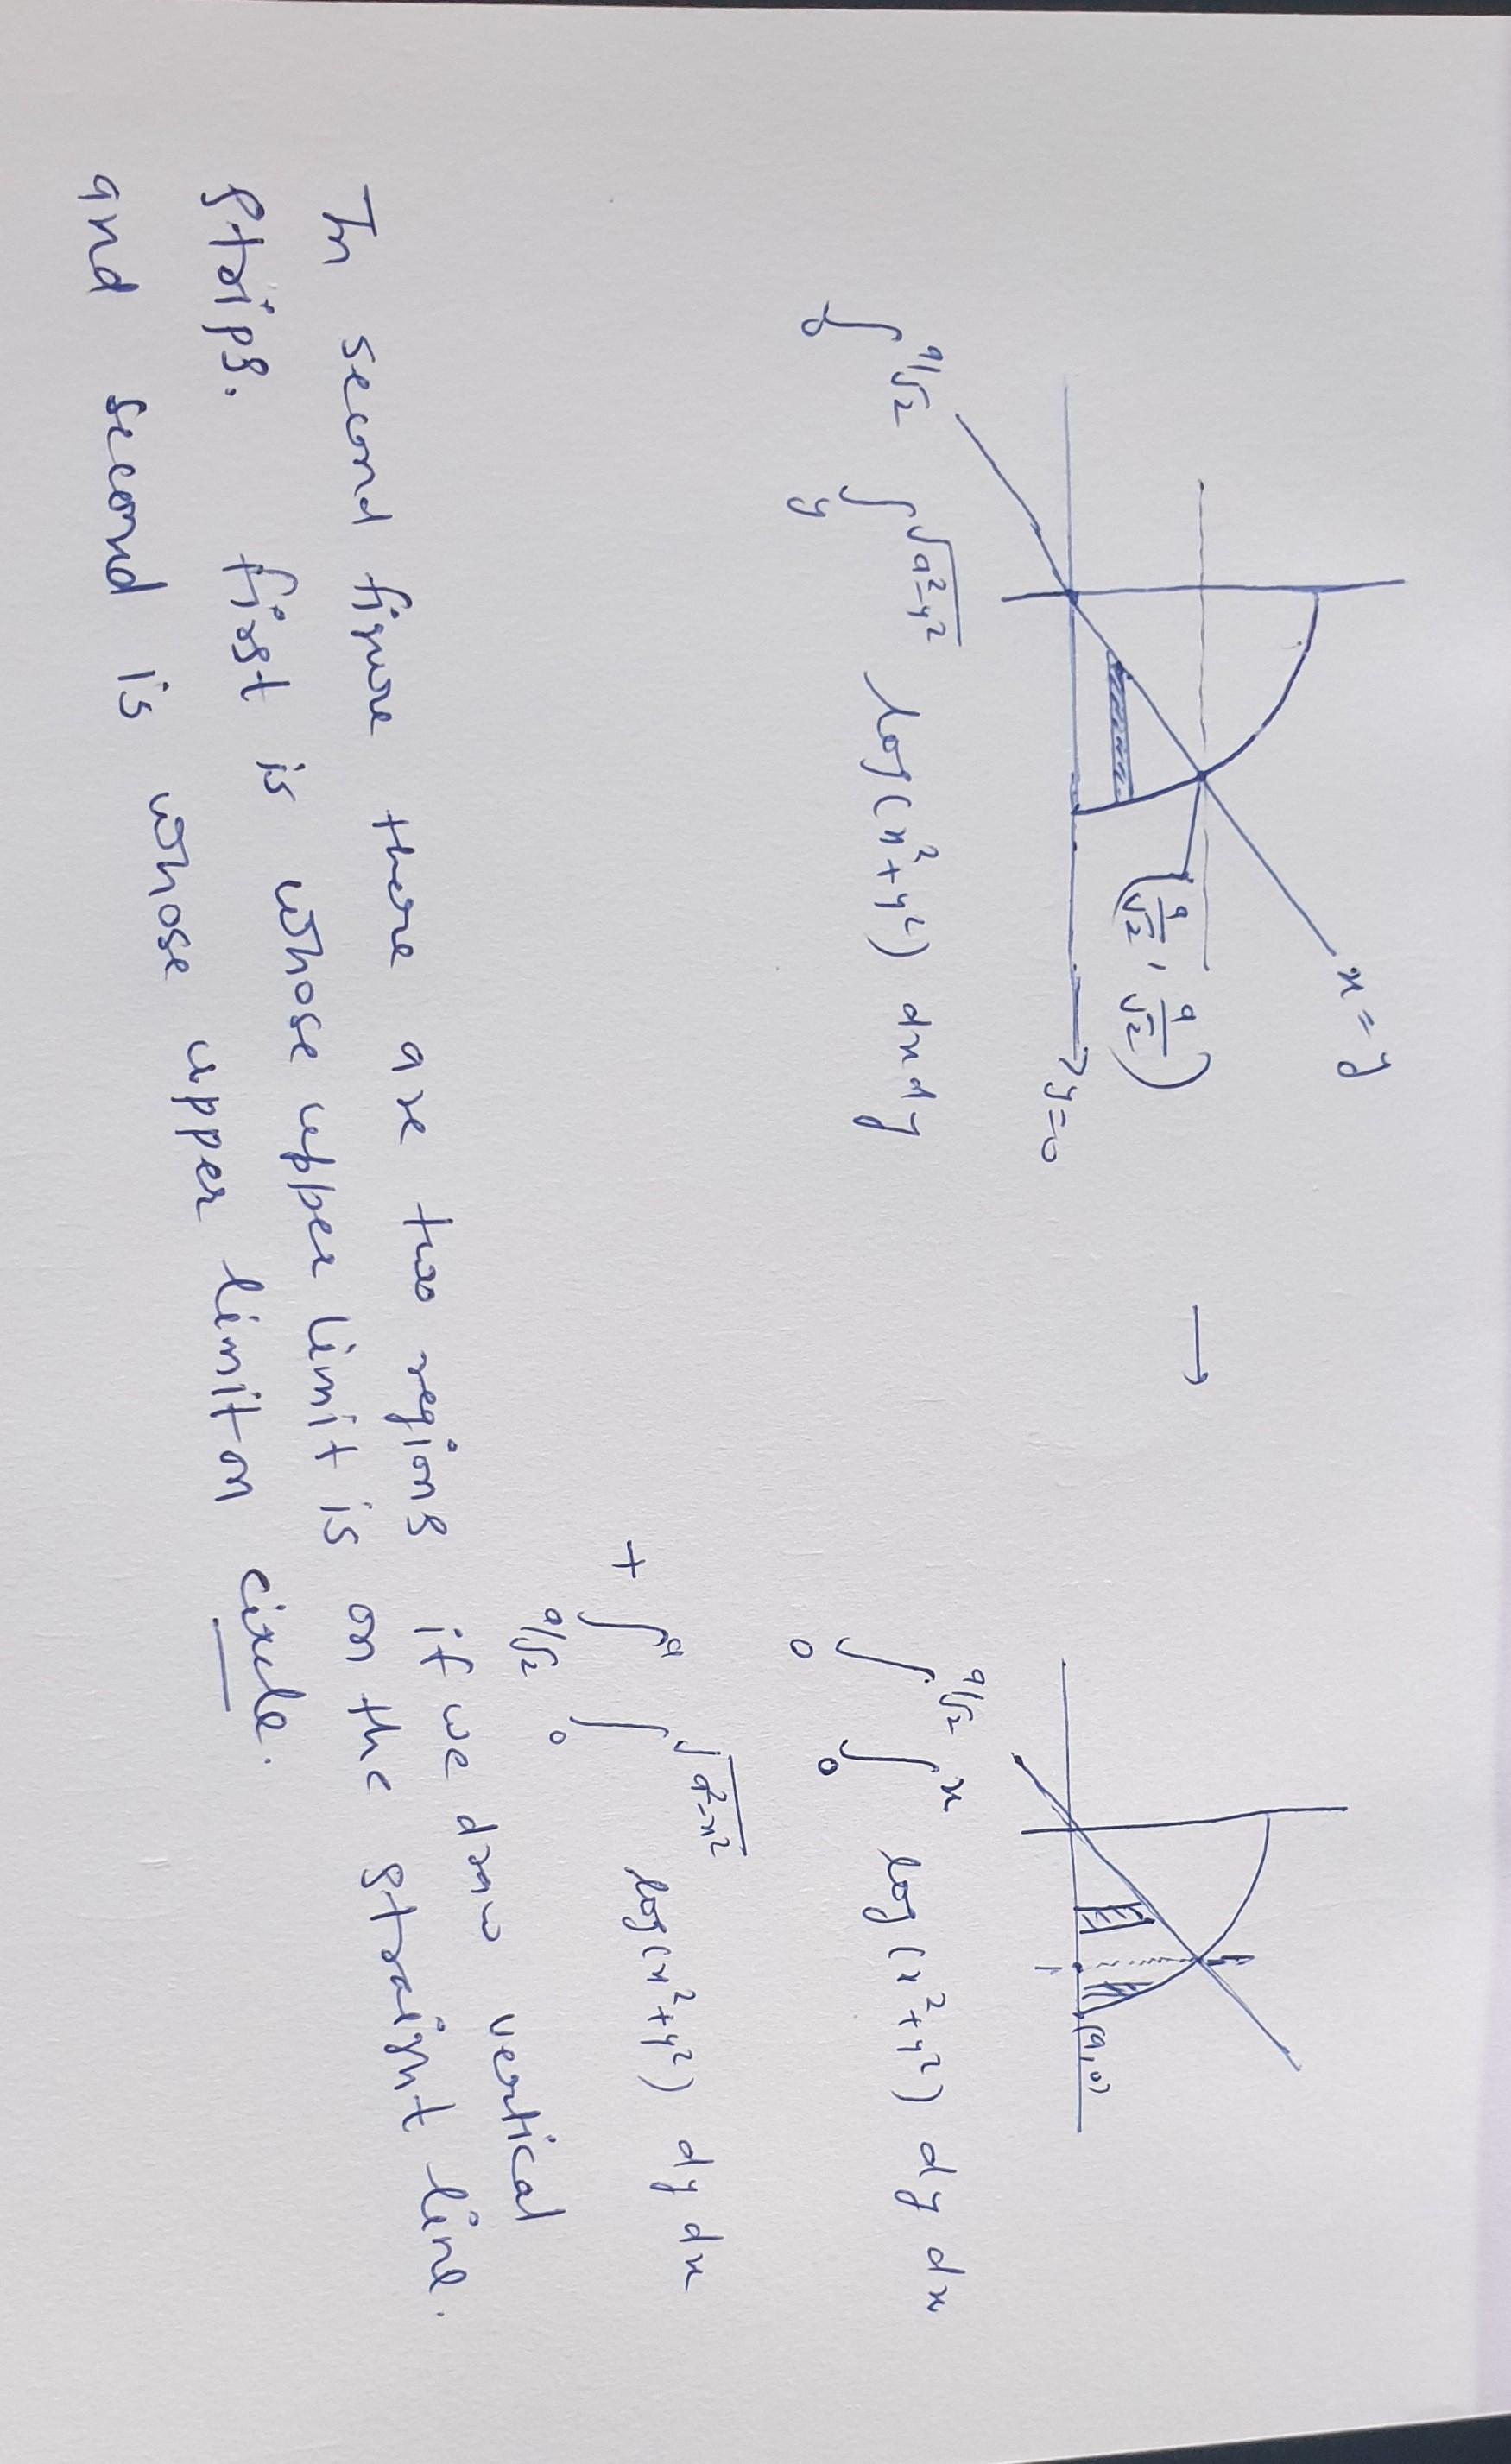 x = y
(a/√2, a/√2)
y=0
→
(a,0)
∫₀^{a/√2} ∫_y^{√(a²-y²)} log(x²+y²) dx dy
∫₀^{a/√2} ∫₀^x log(x²+y²) dy dx
+ ∫_{a/√2}^a ∫₀^{√(a²-x²)} log(x²+y²) dy dx
In second figure there are two regions if we draw vertical
strips. first is whose upper limit is on the straight line.
and second is whose upper limit on circle.